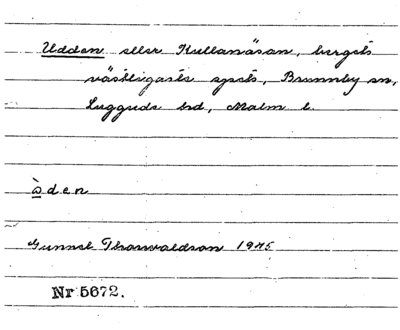 Udden eller Kullanäsan, bergets
västligaste spets, Brunnby sn,
Luggude hd, Malm l.
òden
Gunnel Thorwaldson 1945
Nr 5672.